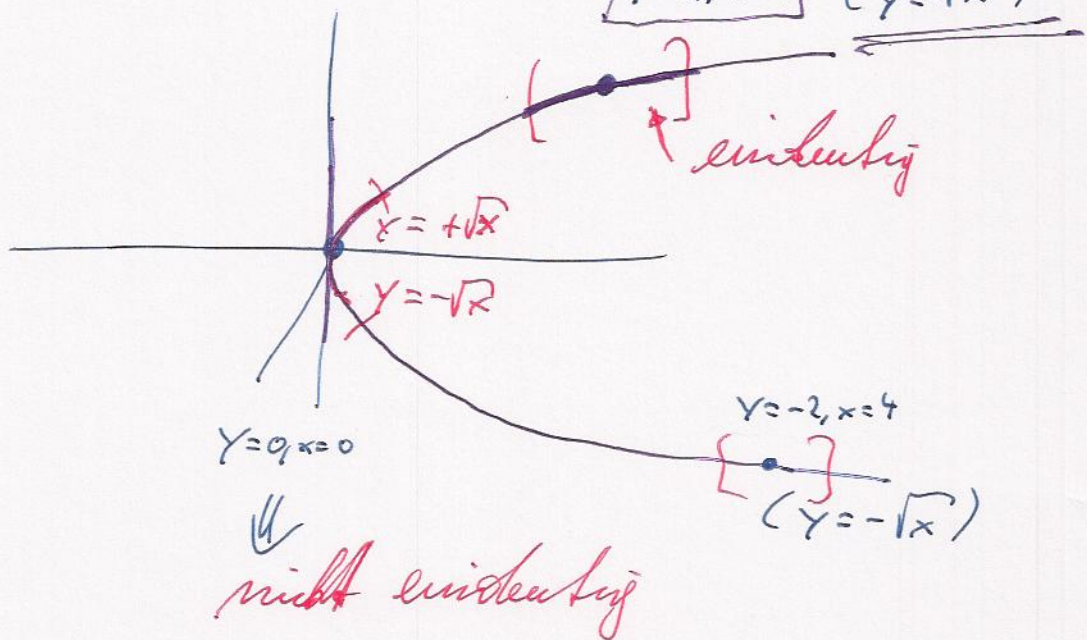 (y=+√x)
eindeutig
y = +√x
y = -√x
y=-2, x=4
y=0, x=0
(y=-√x)
nicht eindeutig